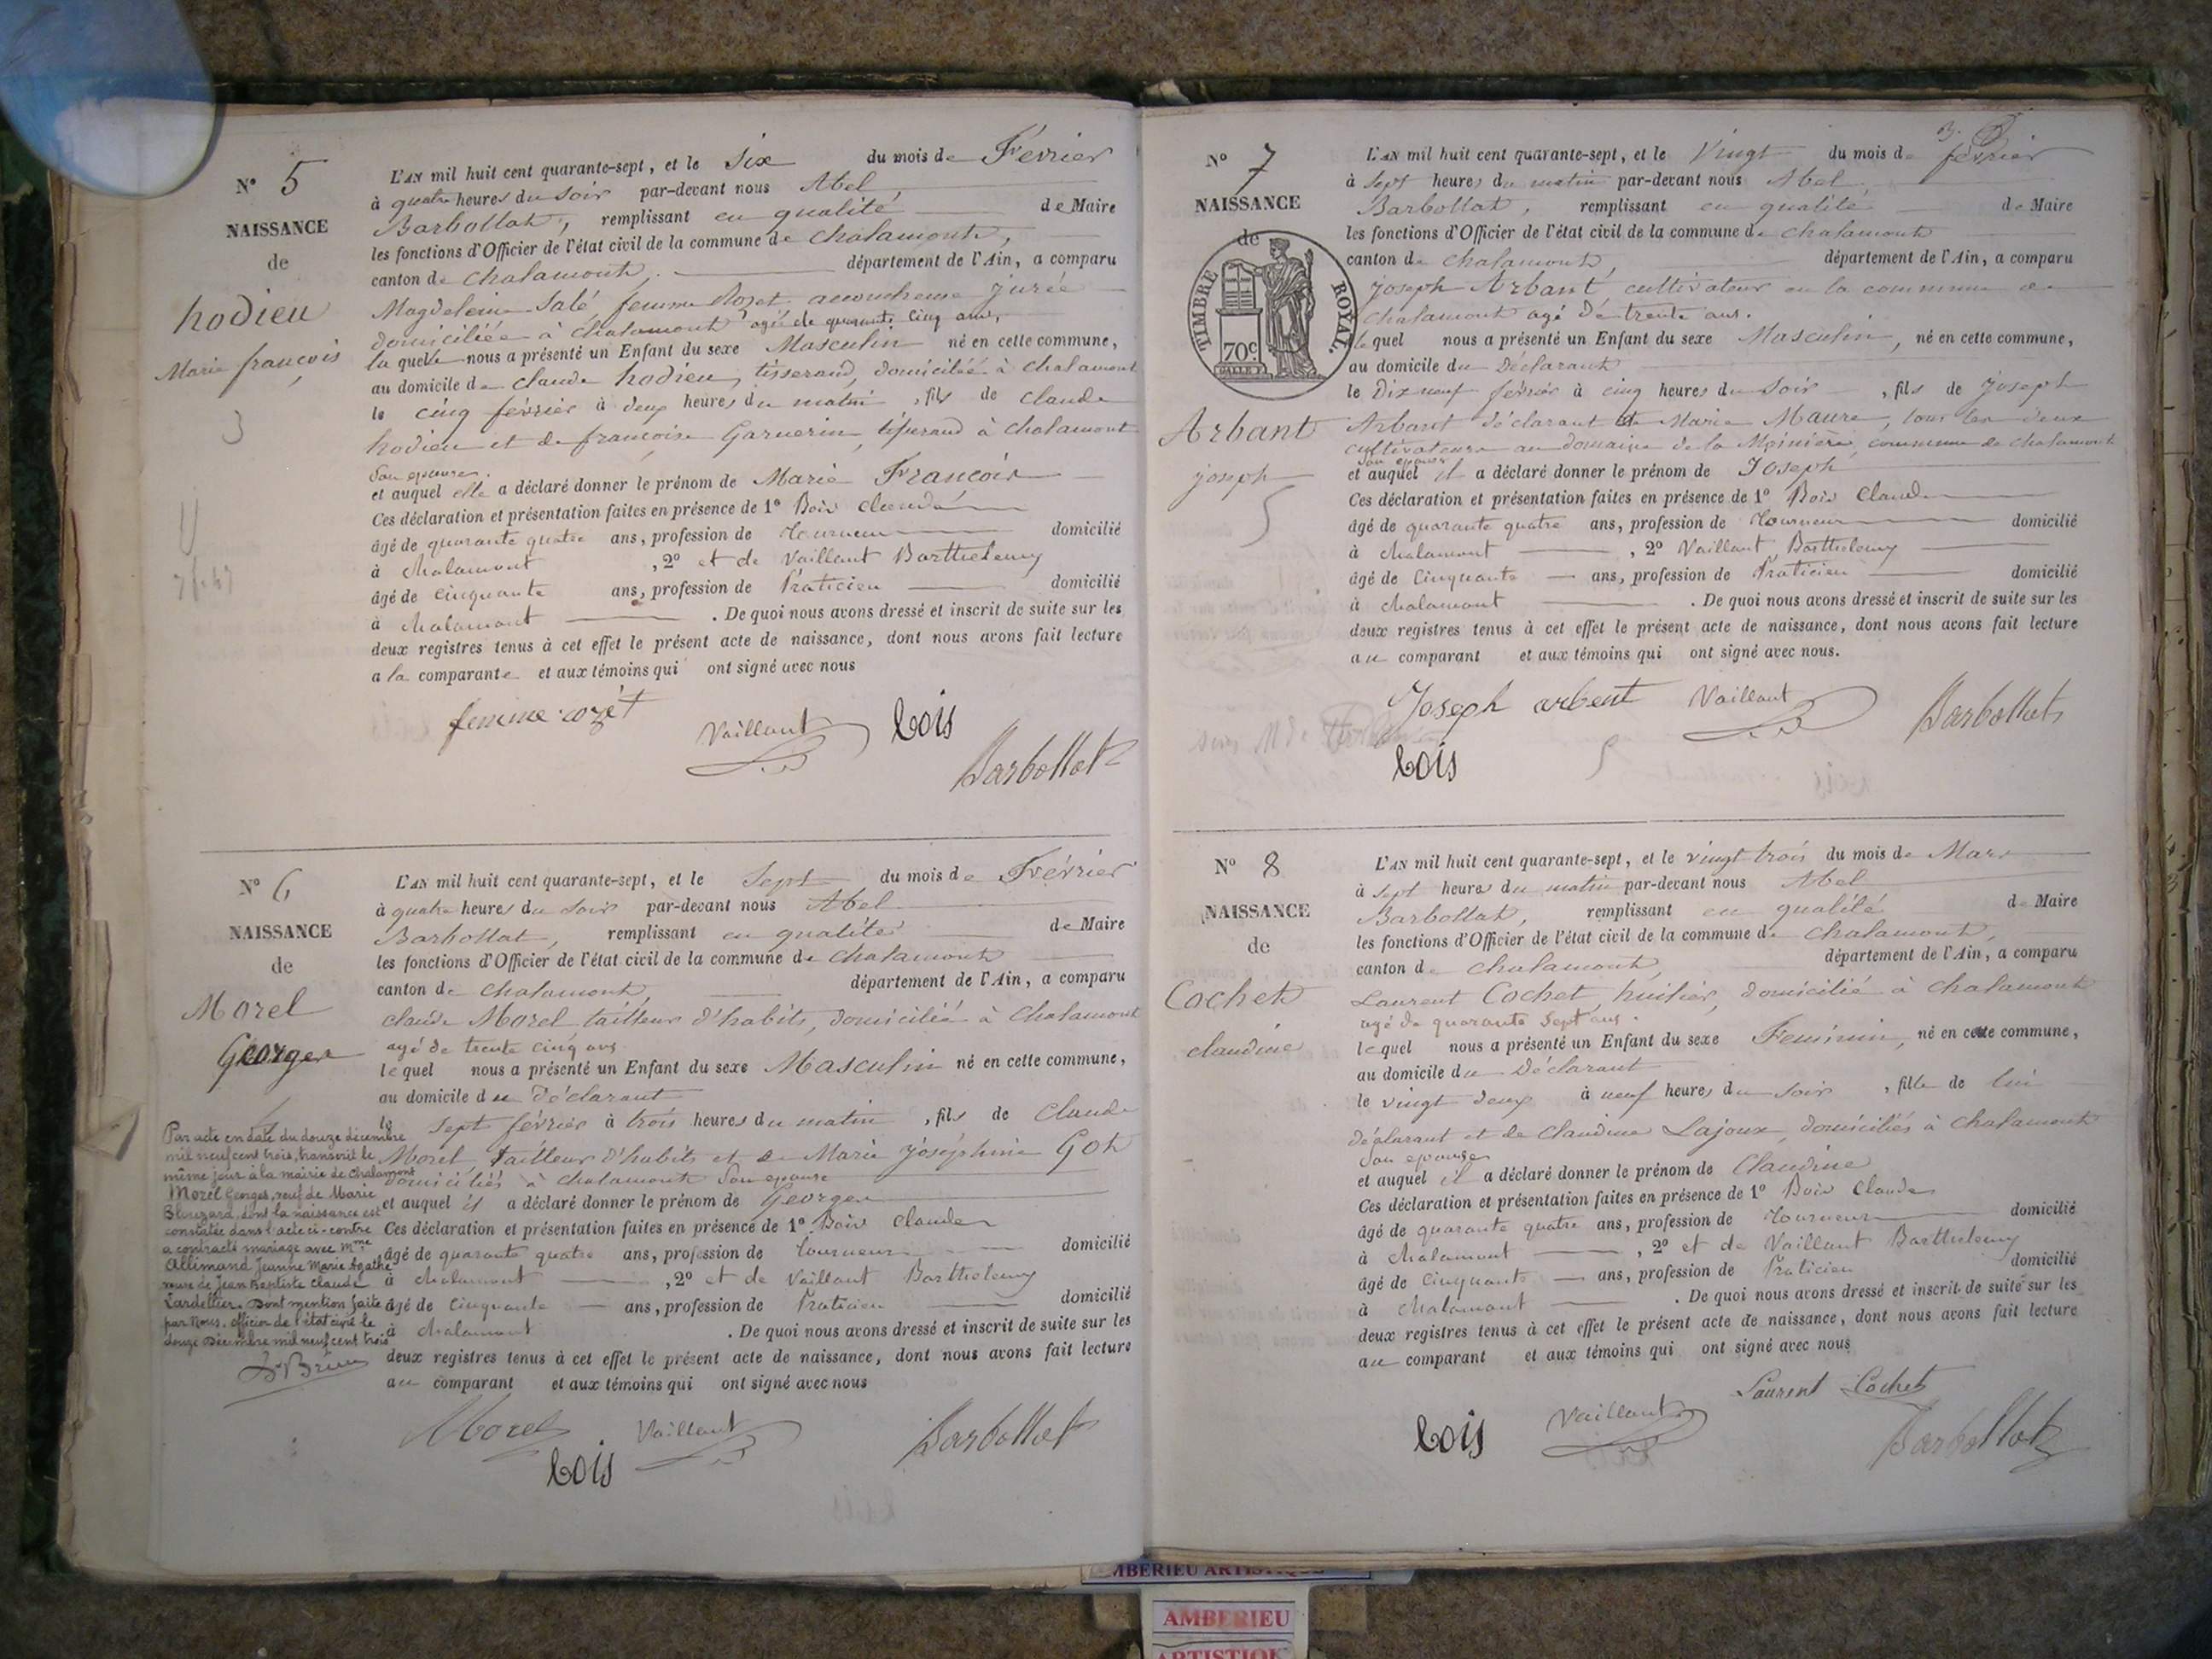 N° 5
NAISSANCE
de
hodieu
Marie françois
3
L'AN mil huit cent quarante-sept, et le Six du mois de Février
à quatre heures du Soir par-devant nous Abel,
Barbollat, remplissant en qualité de Maire
les fonctions d'Officier de l'état civil de la commune de chalamont,
canton de chalamont, département de l'Ain, a comparu
Magdeleine Salé femme Rozet accoucheuse jurée
domiciliée à chalamont agée de quarante cinq ans,
la quelle nous a présenté un Enfant du sexe Masculin né en cette commune,
au domicile de claude hodieu, tisserand, domicilié à chalamont
le cinq février à deux heures du matin, fils de claude
hodieu et de françoise Garnerin, tisserand à chalamont
Son epouse.
et auquel elle a déclaré donner le prénom de Marie François
Ces déclaration et présentation faites en présence de 1° Bois claude
âgé de quarante quatre ans, profession de Tourneur domicilié
à chalamont, 2° et de Vaillant Barthelemy
âgé de cinquante ans, profession de Praticien domicilié
à chalamont. De quoi nous avons dressé et inscrit de suite sur les
deux registres tenus à cet effet le présent acte de naissance, dont nous avons fait lecture
a la comparante et aux témoins qui ont signé avec nous
femme rozet
Vaillant
bois
Barbollat
N° 6
NAISSANCE
de
Morel
Georges
Par acte en date du douze décembre
mil neuf cent trois, transcrit le
même jour à la mairie de Chalamont
Morel Georges, veuf de Marie
dont la naissance est
constatée dans l'acte ci-contre
a contracté mariage avec Mme
Allimand Jeanne Marie Agathe
veuve de Jean Baptiste Claude
Lardellier. Dont mention faite
par Nous, officier de l'état civil le
douze Décembre mil neuf cent trois
L'AN mil huit cent quarante-sept, et le Sept du mois de Février
à quatre heures du Soir par-devant nous Abel
Barbollat, remplissant en qualité de Maire
les fonctions d'Officier de l'état civil de la commune de chalamont
canton de chalamont, département de l'Ain, a comparu
claude Morel tailleur d'habits, domicilié à Chalamont
agé de trente cinq ans
lequel nous a présenté un Enfant du sexe Masculin né en cette commune,
au domicile du déclarant
le sept février à trois heures du matin, fils de Claude
Morel, tailleur d'habits et de Marie joséphine Got
domiciliés à chalamont Son epouse
et auquel il a déclaré donner le prénom de Georges
Ces déclaration et présentation faites en présence de 1° Bois Claude
âgé de quarante quatre ans, profession de tourneur domicilié
à chalamont, 2° et de Vaillant Barthelemy
âgé de Cinquante ans, profession de Praticien domicilié
à chalamont. De quoi nous avons dressé et inscrit de suite sur les
deux registres tenus à cet effet le présent acte de naissance, dont nous avons fait lecture
au comparant et aux témoins qui ont signé avec nous
Morel
Vaillant
bois
Barbollat
N° 7
NAISSANCE
de
TIMBRE ROYAL.
70c
Arbant
joseph
5
L'AN mil huit cent quarante-sept, et le Vingt du mois de février
à Sept heures du matin par-devant nous Abel,
Barbollat, remplissant en qualité de Maire
les fonctions d'Officier de l'état civil de la commune de chalamont
canton de chalamont, département de l'Ain, a comparu
joseph Arbant cultivateur en la commune de
chalamont agé de trente ans.
lequel nous a présenté un Enfant du sexe Masculin, né en cette commune,
au domicile du Déclarant
le Dix neuf février à cinq heures du Soir, fils de joseph
Arbant déclarant et Marie Maure, tous les deux
cultivateurs au domaine de la commune de chalamont
Son epouse
et auquel il a déclaré donner le prénom de Joseph
Ces déclaration et présentation faites en présence de 1° Bois Claude
âgé de quarante quatre ans, profession de Tourneur domicilié
à chalamont, 2° Vaillant Barthelemy
âgé de Cinquante ans, profession de Praticien domicilié
à chalamont. De quoi nous avons dressé et inscrit de suite sur les
deux registres tenus à cet effet le présent acte de naissance, dont nous avons fait lecture
au comparant et aux témoins qui ont signé avec nous.
Joseph arbent
Vaillant
Barbollat
bois
N° 8
NAISSANCE
de
Cochet
claudine
L'AN mil huit cent quarante-sept, et le vingt trois du mois de Mars
à sept heures du matin par-devant nous Abel
Barbollat, remplissant en qualité de Maire
les fonctions d'Officier de l'état civil de la commune de chalamont,
canton de chalamont, département de l'Ain, a comparu
Laurent Cochet, huissier, domicilié à chalamont
agé de quarante Sept ans.
lequel nous a présenté un Enfant du sexe Feminin, né en cette commune,
au domicile du Déclarant
le vingt deux à neuf heures du soir, fille de lui
déclarant et de Claudine Lajoux, domiciliés à chalamont
Son epouse
et auquel il a déclaré donner le prénom de Claudine
Ces déclaration et présentation faites en présence de 1° Bois Claude
âgé de quarante quatre ans, profession de Tourneur domicilié
à chalamont, 2° et de Vaillant Barthelemy
âgé de Cinquante ans, profession de Praticien domicilié
à chalamont. De quoi nous avons dressé et inscrit de suite sur les
deux registres tenus à cet effet le présent acte de naissance, dont nous avons fait lecture
au comparant et aux témoins qui ont signé avec nous
Laurent Cochet
bois
Vaillant
Barbollat
AMBERIEU
ARTISTIQUE